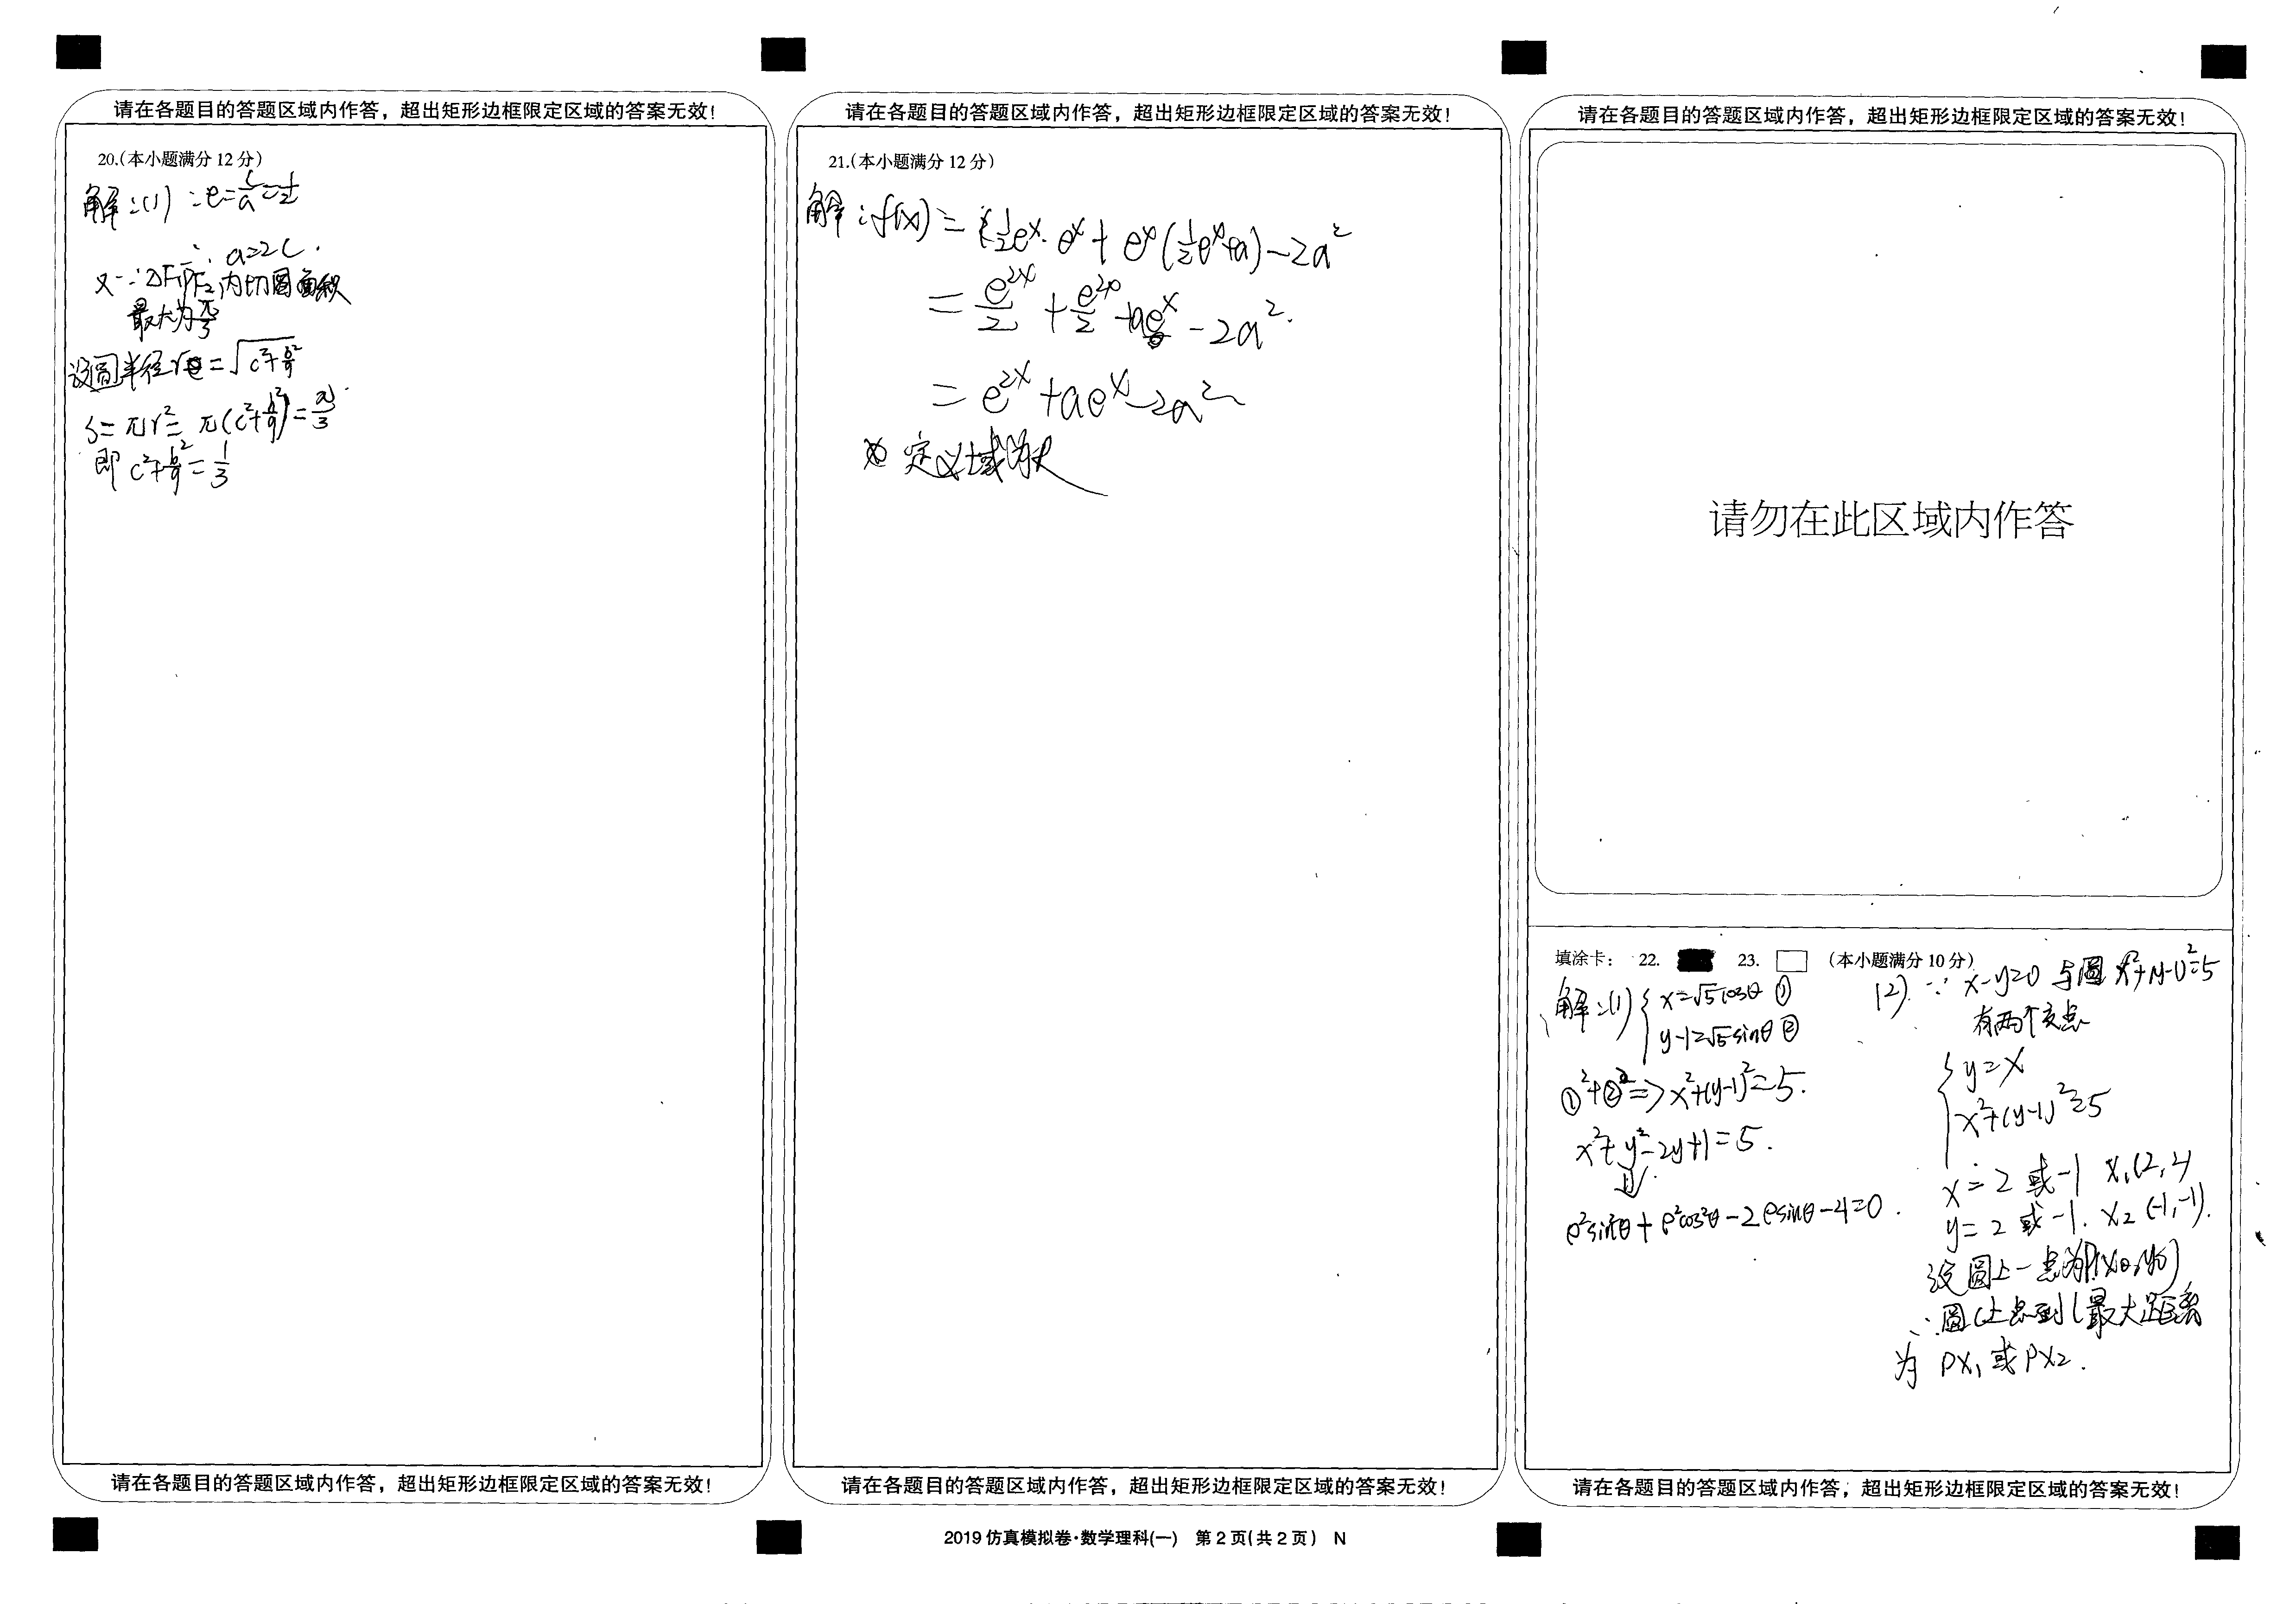 请在各题目的答题区域内作答，超出矩形边框限定区域的答案无效！
20.(本小题满分 12 分)
解：(1) ∵e=c/a=1/2
∴ a=2c.
又∵△F₁PF₂内切圆面积
最大为π/3
设圆半径r=√(c²+b²/9)
S=πr²=π(c²+b²/9)=π/3
即 c²+b²/9=1/3
请在各题目的答题区域内作答，超出矩形边框限定区域的答案无效！
请在各题目的答题区域内作答，超出矩形边框限定区域的答案无效！
21.(本小题满分 12 分)
解：f(x)=½eˣ·eˣ+eˣ(½eˣ+a)-2a²
=e²ˣ/2+e²ˣ/2+aeˣ-2a².
=e²ˣ+aeˣ-2a²
定义域为R
请在各题目的答题区域内作答，超出矩形边框限定区域的答案无效！
请在各题目的答题区域内作答，超出矩形边框限定区域的答案无效！
请勿在此区域内作答
填涂卡： 22. 23. (本小题满分 10 分)
解：(1){x=√5cosθ ①
y-1=√5sinθ ②
①²+②²⇒x²+(y-1)²=5.
x²+y²-2y+1=5.
⇓
ρ²sin²θ+ρ²cos²θ-2ρsinθ-4=0.
(2). ∵ x-y=0 与圆 x²+(y-1)²=5
有两个交点
{y=x
x²+(y-1)²=5
x=2 或-1 x₁(2,2)
y=2 或-1. x₂(-1,-1).
设圆上一点为P(x₀,y₀)
∴圆C上点到l最大距离
为 PX₁或PX₂.
请在各题目的答题区域内作答，超出矩形边框限定区域的答案无效！
2019 仿真模拟卷·数学理科(一) 第 2 页(共 2 页) N